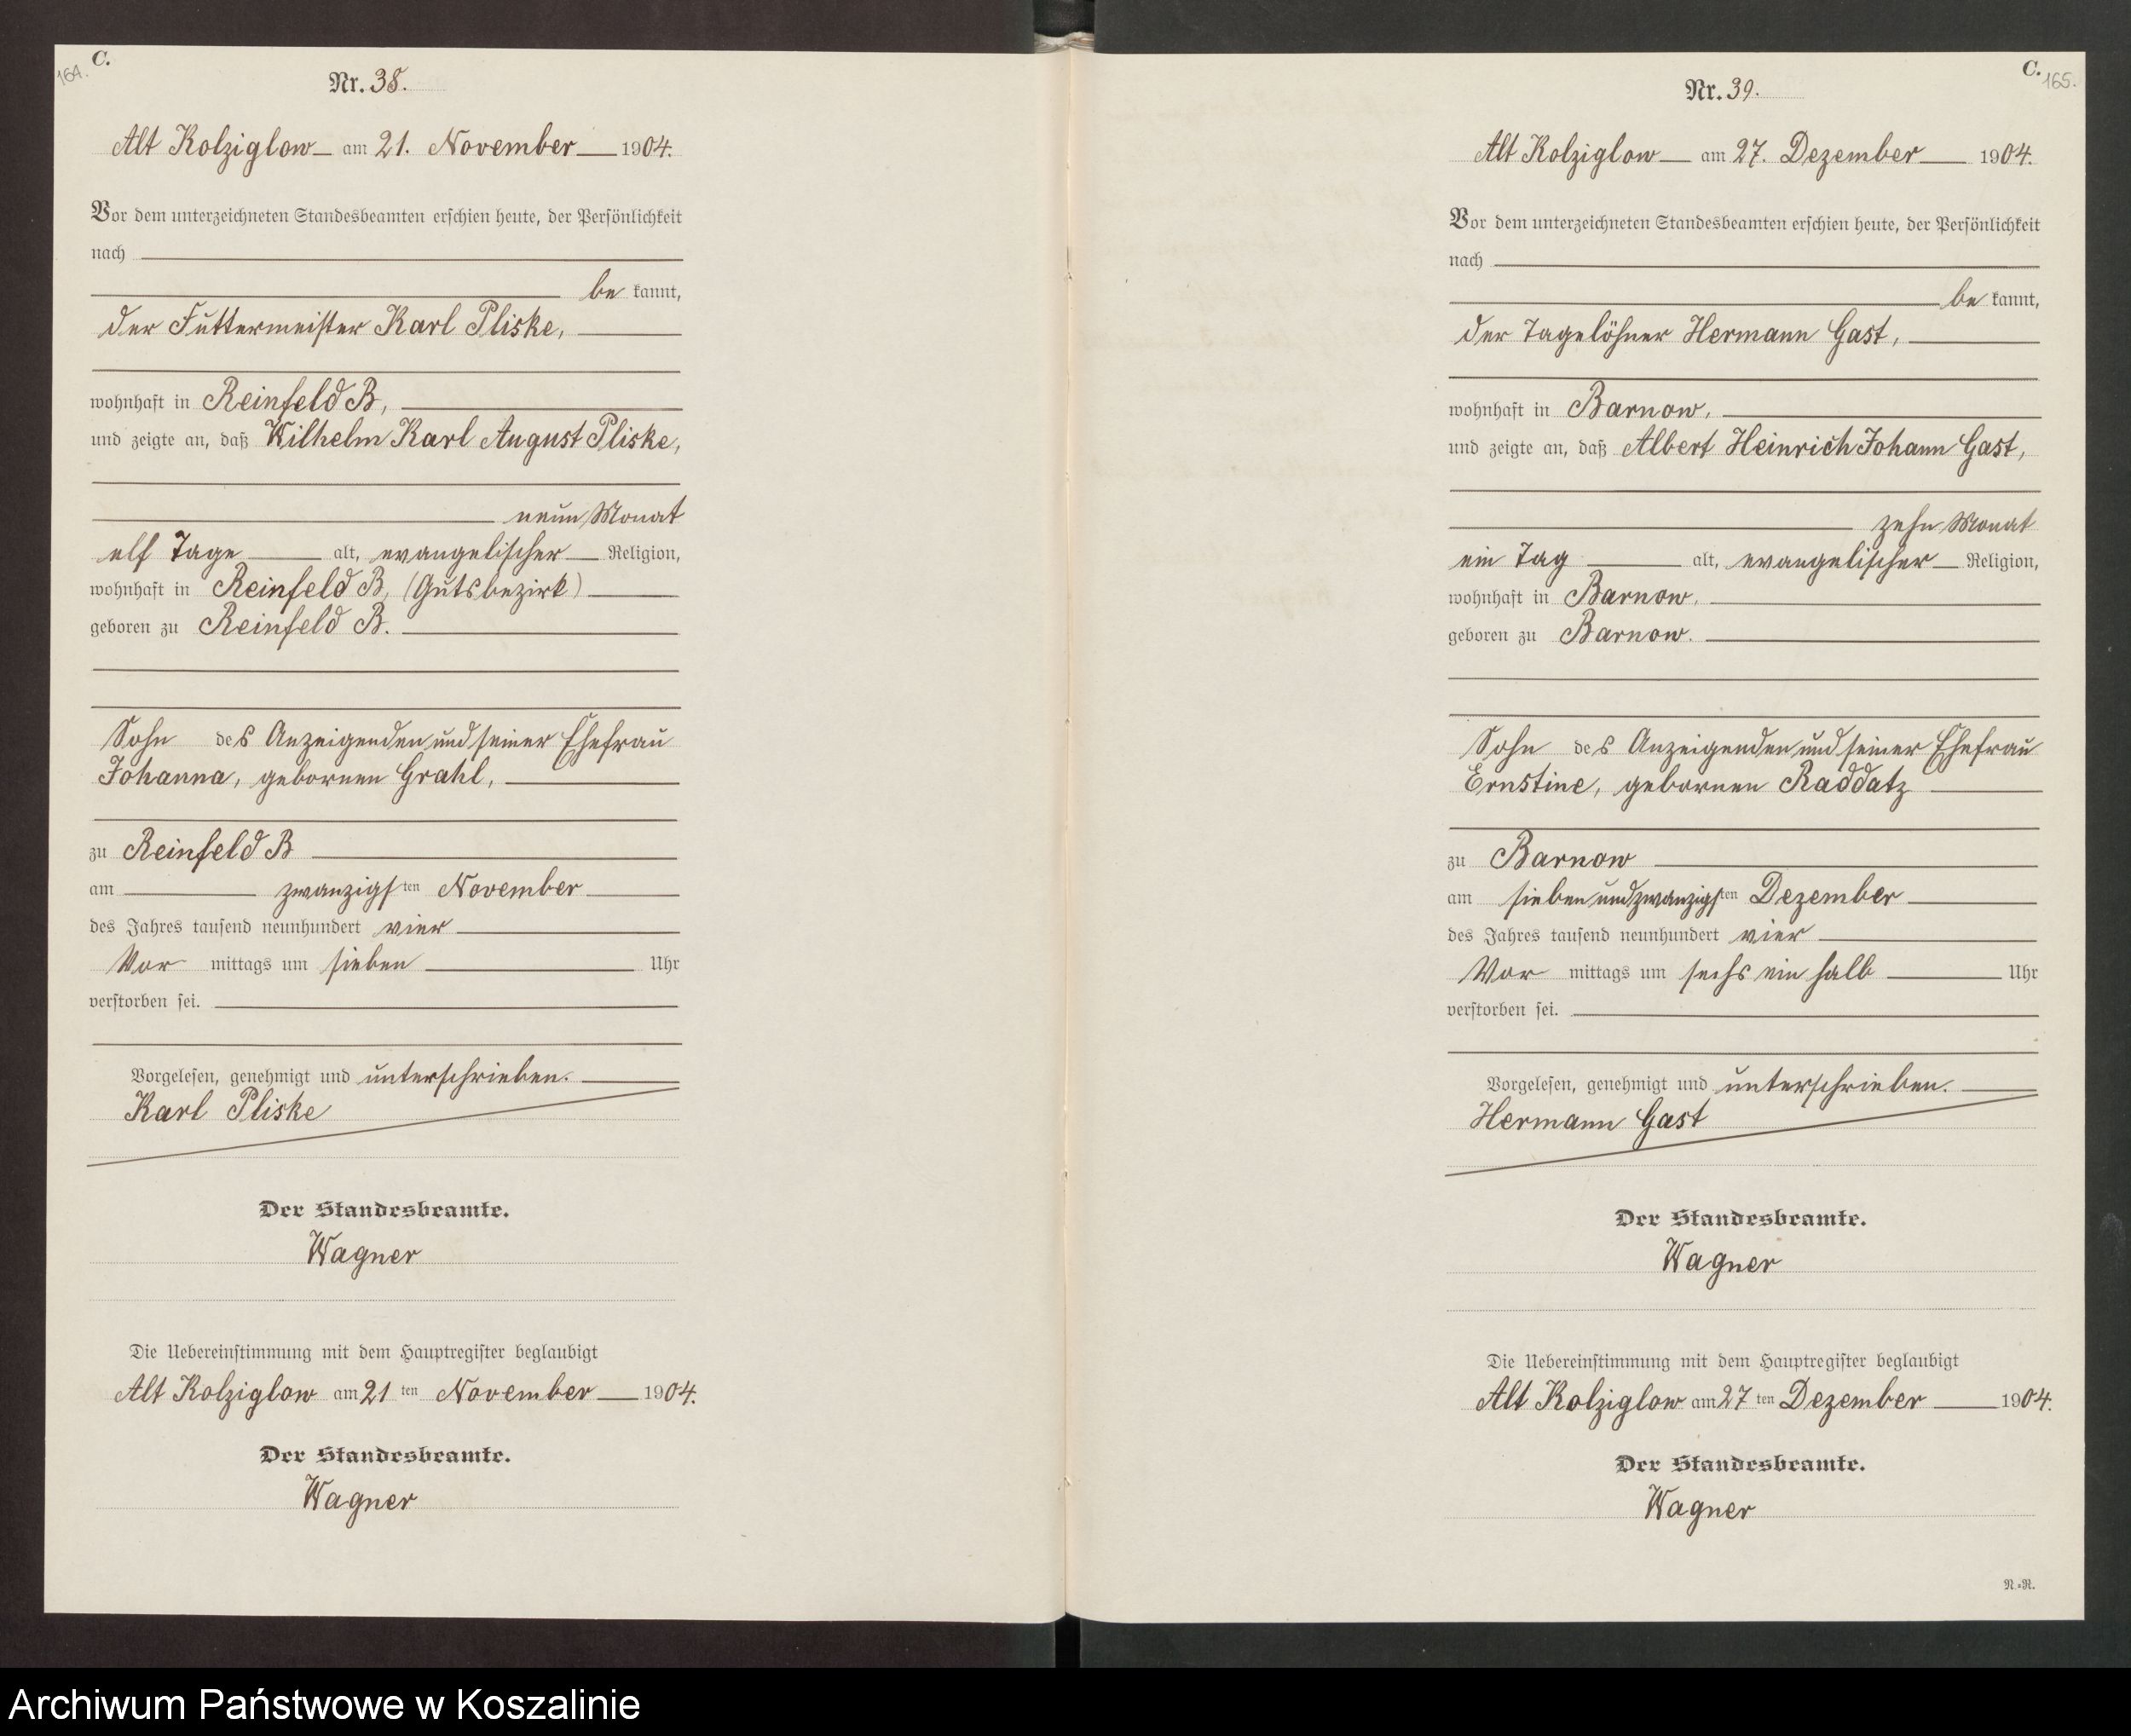 164.
C.
Nr. 38.
Alt Kolziglow am 21. November 1904.
Vor dem unterzeichneten Standesbeamten erschien heute, der Persönlichkeit
nach
be kannt,
der Futtermeister Karl Pliske,
wohnhaft in Reinfeld B,
und zeigte an, daß Wilhelm Karl August Pliske,
neun Monat
elf Tage alt, evangelischer Religion,
wohnhaft in Reinfeld B, (Gutsbezirk)
geboren zu Reinfeld B.
Sohn des Anzeigenden und seiner Ehefrau
Johanna, gebornen Grahl,
zu Reinfeld B
am zwanzigsten November
des Jahres tausend neunhundert vier
Vor mittags um sieben Uhr
verstorben sei.
Vorgelesen, genehmigt und unterschrieben.
Karl Pliske
Der Standesbeamte.
Wagner
Die Uebereinstimmung mit dem Hauptregister beglaubigt
Alt Kolziglow am 21 ten November 1904.
Der Standesbeamte.
Wagner
C.
165.
Nr. 39.
Alt Kolziglow am 27. Dezember 1904.
Vor dem unterzeichneten Standesbeamten erschien heute, der Persönlichkeit
nach
be kannt,
der Tagelöhner Hermann Gast,
wohnhaft in Barnow,
und zeigte an, daß Albert Heinrich Johann Gast,
zehn Monat
ein Tag alt, evangelischer Religion,
wohnhaft in Barnow,
geboren zu Barnow.
Sohn des Anzeigenden und seiner Ehefrau
Ernstine, gebornen Raddatz
zu Barnow
am siebenundzwanzigsten Dezember
des Jahres tausend neunhundert vier
Vor mittags um sechs ein halb Uhr
verstorben sei.
Vorgelesen, genehmigt und unterschrieben.
Hermann Gast
Der Standesbeamte.
Wagner
Die Uebereinstimmung mit dem Hauptregister beglaubigt
Alt Kolziglow am 27 ten Dezember 1904.
Der Standesbeamte.
Wagner
N.=R.
Archiwum Państwowe w Koszalinie